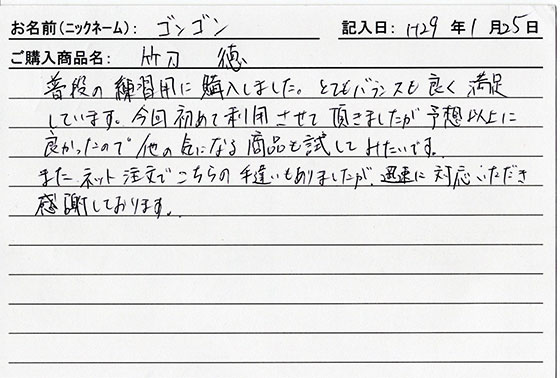 お名前(ニックネーム): ゴンゴン 記入日: H29 年 1 月 25 日
ご購入商品名: 竹刀 徳
普段の練習用に購入しました。とてもバランスも良く満足
しています。今回初めて利用させて頂きましたが予想以上に
良かったので他の気になる商品も試してみたいです。
またネット注文でこちらの手違いもありましたが、迅速に対応いただき
感謝しております。